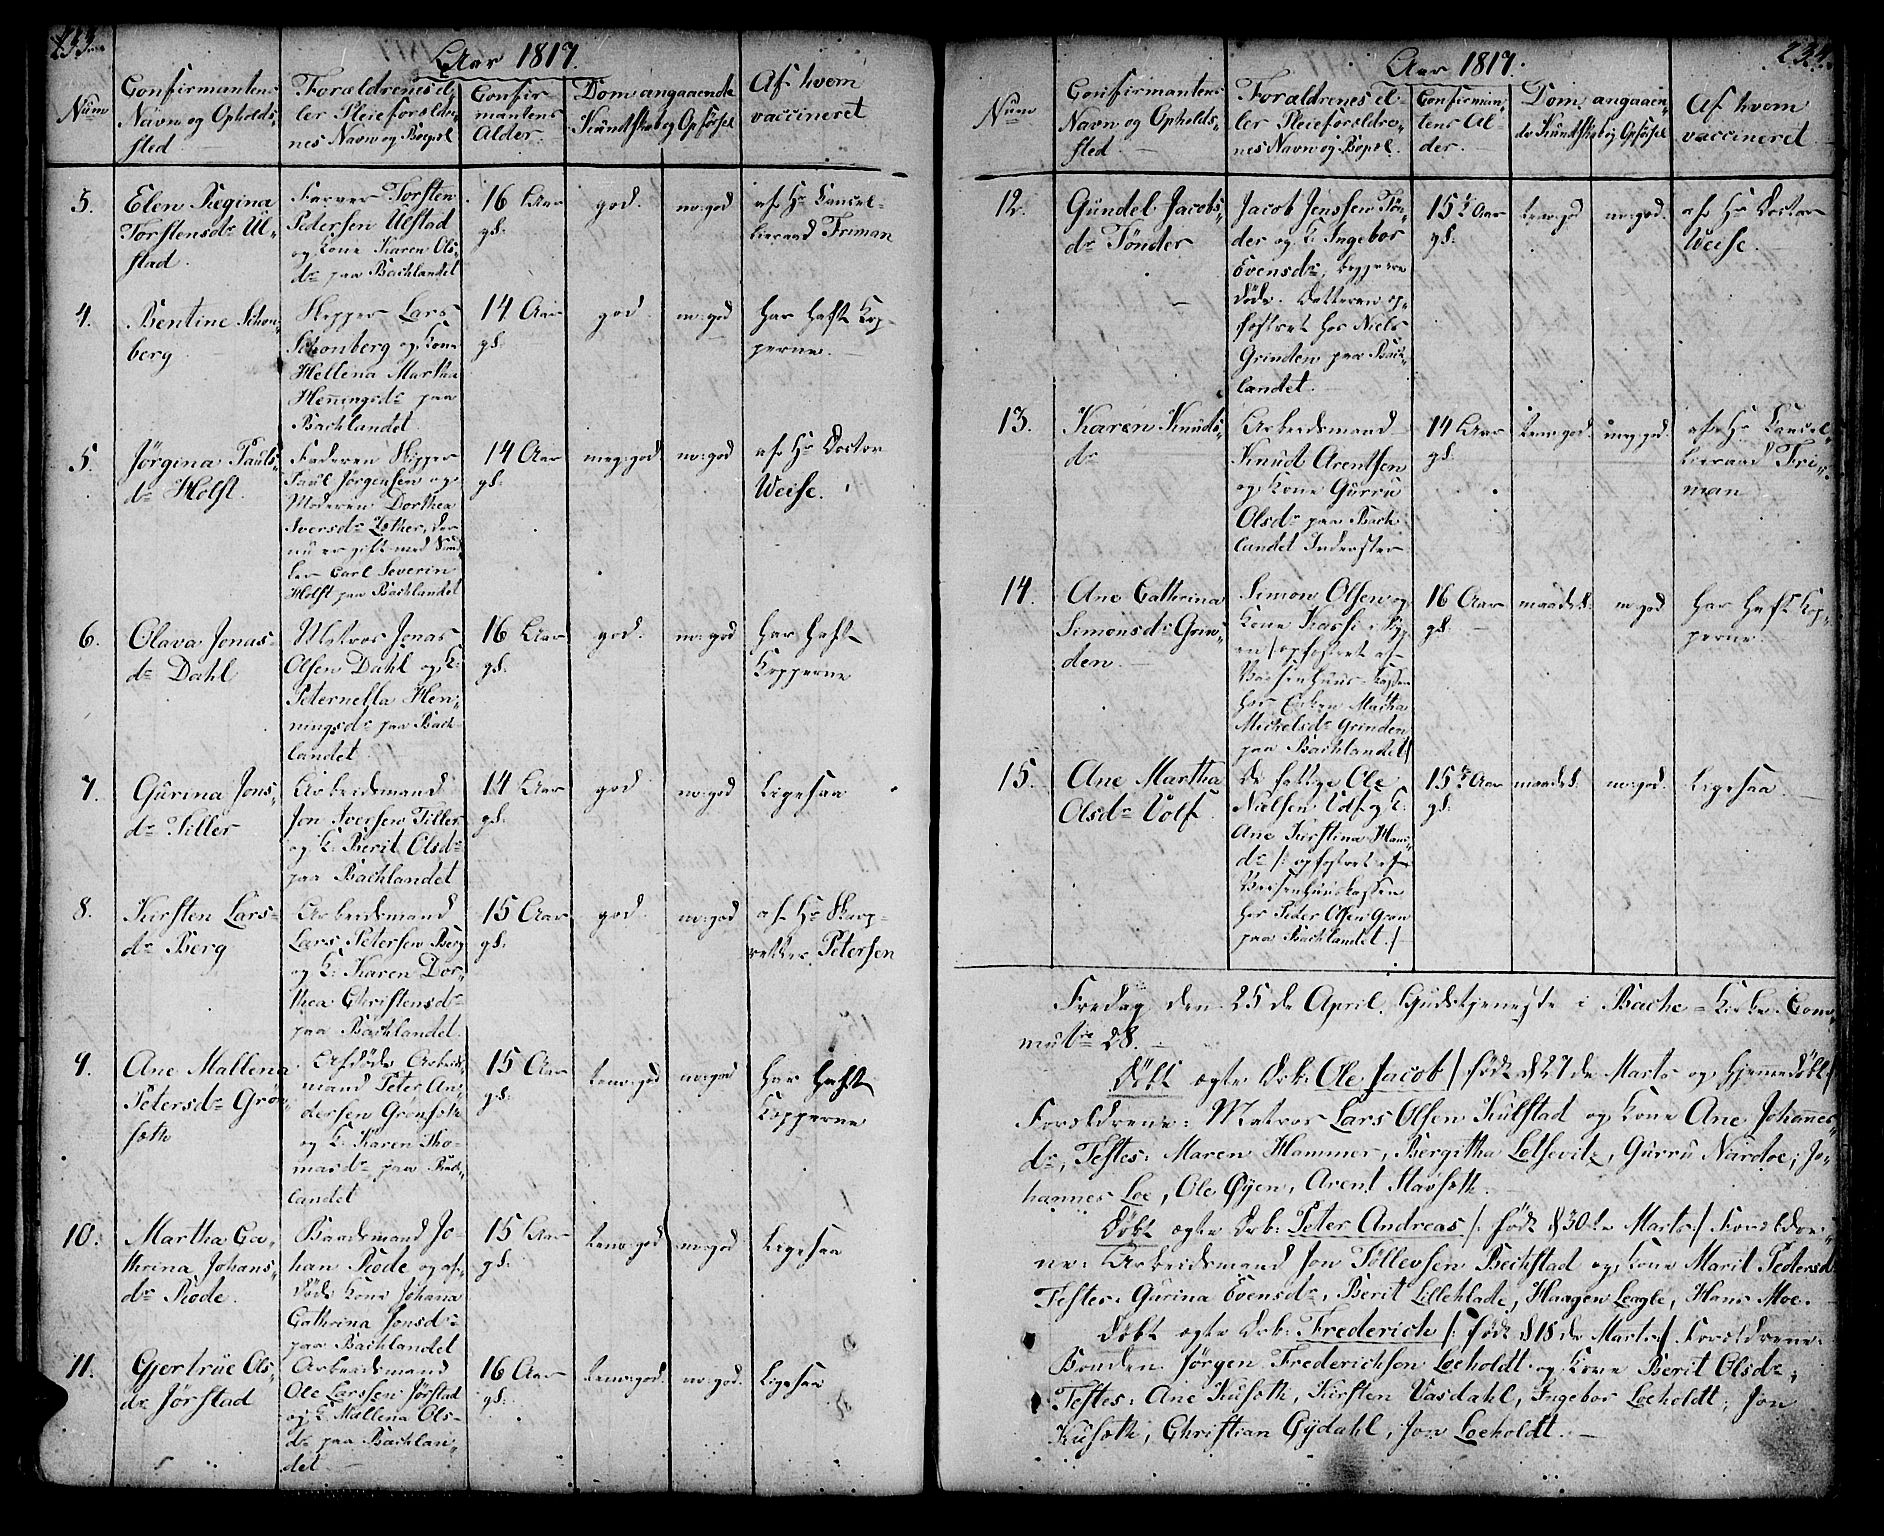 233.
Aar 1817.
Num
Confirmantens
Navn og Opholds-
sted
Forældrenes el-
ler Pleieforældre-
nes Navn og Bopæl
Confir-
mantens
Alder.
Dom angaaende
Kundskab og Opførsel
Af hvem
vaccineret
3.
Elen Regina
Torstensdr Ul-
stad.
Farver Torsten
Pedersen Ulstad
og Kone Karen Ols-
dr paa Bachlandet
16 Aar
gl.
god.
no: god
af Hr Cancel-
lieraad Friman
4.
Bentine Schon-
berg
Skipper Lars
Schonberg og Kone
Hellena Martha
Henningsdr paa
Bachlandet.
14 Aar
gl.
god.
no: god
har havt Kop-
perne.
5.
Jörgina Pauls-
dr Holst.
Faderen Skipper
Paul Jörgensen og
Moderen Dorthea
Iversdr Lother, der
nu er gift med
Carl Severin
Holst paa Bachlandet
14 Aar
gl.
meg: god
no: god
af Hr Doctor
Weise.
6.
Olava Jonas-
dr Dahl
Matros Jonas
Olsen Dahl og K:
Peternella Hen-
ningsdr paa Bach-
landet
16 Aar
gl.
god.
no: god
har havt
Kopperne
7.
Gurina Jons-
dr Tiller
Arbeidsmand
Jon Iversen Tiller
og K: Berit Olsdr
paa Bachlandet
14 Aar
gl.
god
no: god
Ligesaa
8.
Kirsten Lars-
dr Berg
Arbeidsmand
Lars Petersen Berg
og K: Karen Dor-
thea Christensdr
paa Bachlandet.
15 Aar
gl.
god.
no: god
af Hr Skarp-
retter Petersen
9.
Ane Mallena
Petersdr Grön-
sæth
Afdøde Arbeids-
mand Peter An-
dersen Grönsæth
og K: Karen Tho-
masdr paa Bach-
landet
15 Aar
gl.
temo: god
no: god
har havt
Kopperne
10.
Martha Ca-
thrina Johans-
dr Rode.
Baadsmand Jo-
han Rode og af-
døde Kone Johana
Cathrina Jonsdr
paa Bachlandet
15 Aar
gl.
temo: god
no: god
Ligesaa
11.
Gjertrue Ols-
dr Jörstad
Arbeidsmand
Ole Larssen Jörstad
og K: Mallena Ols-
dr paa Bachlan-
det
16 Aar
gl.
temo: god.
no: god.
Ligesaa
234.
Aar 1817.
Num
Confirmantens
Navn og Opholds-
sted
Forældrenes el-
ler Pleieforældre-
nes Navn og Bopæl.
Confirman-
tens Al-
der.
Dom angaaen-
de Kundskab og Opførsel
Af hvem
vaccineret
12.
Gundel Jacobs-
dr Tönder
Jacob Jenssen Tön-
der og K: Ingebor
Evensdr, begge ere
døde. Datteren op-
fostret hos Niels
Grinden paa Bach-
landet.
15½ Aar
gl.
temo: god
no: god.
af Hr Doctor
Weise.
13.
Karen Knuds-
dr
Arbeidsmand
Knud Arentsen
og Kone Gurru
Olsdr paa Bach-
landet Inderster
14 Aar
gl.
temo: god.
meg: god.
af Hr Cancel-
lieraad Fri-
man
14.
Ane Cathrina
Simonsdr Grin-
den.
Simon Olsen og
Kone
opfostret af
Vaisenhuus-Kassen
hos Enken Martha
Mickelsdr Grinden
paa Bachlandet/
16 Aar
gl.
maadel.
no: god
har havt Kop-
perne
15.
Ane Martha
Olsdr Volf.
De fattige Ole
Nielsen Volf og K:
Ane Kirstina Hans-
dr /: opfostret af
Vaisenhuuskassen
hos Peder Olsen Gran
paa Bachlandet./
15½ Aar
gl.
maadel.
no: god.
Ligesaa.
Fredag den 25de April. Gudstjeneste i Bache-Kirke. Com-
mu 28.
Döbt ægte Drb: Ole Jacob /: født d 27de Marts og hjemmedøbt/
Forældrene: Matros Lars Olsen Kulstad og Kone Ane Johannes-
dr, Testes: Maren Hammer, Bergitha Letsevitz, Gurru Nardoe, Jo-
hannes Loe, Ole Öyen, Arent Stavsæth.
Döbt ægte Drb: Peter Andreas /: født d 30te Marts:/ Forældre-
ne: Arbeidsmand Jon Tollevsen Bechstad og Kone Marit Pedersdr
Testes: Gurina Evensdr, Berit Lilleklade, Haagen Leagle, Hans Moe.
Döbt ægte Drb: Frederich /: født d 18de Marts:/ Forældrene:
Bonden Jörgen Frederichson Loeholdt og Kone Berit Olsdr,
Testes: Ane Kusæth, Kirsten Vasdahl, Ingebor Loeholdt, Jon
Kusæth, Christian Gydahl, Jon Loeholdt.